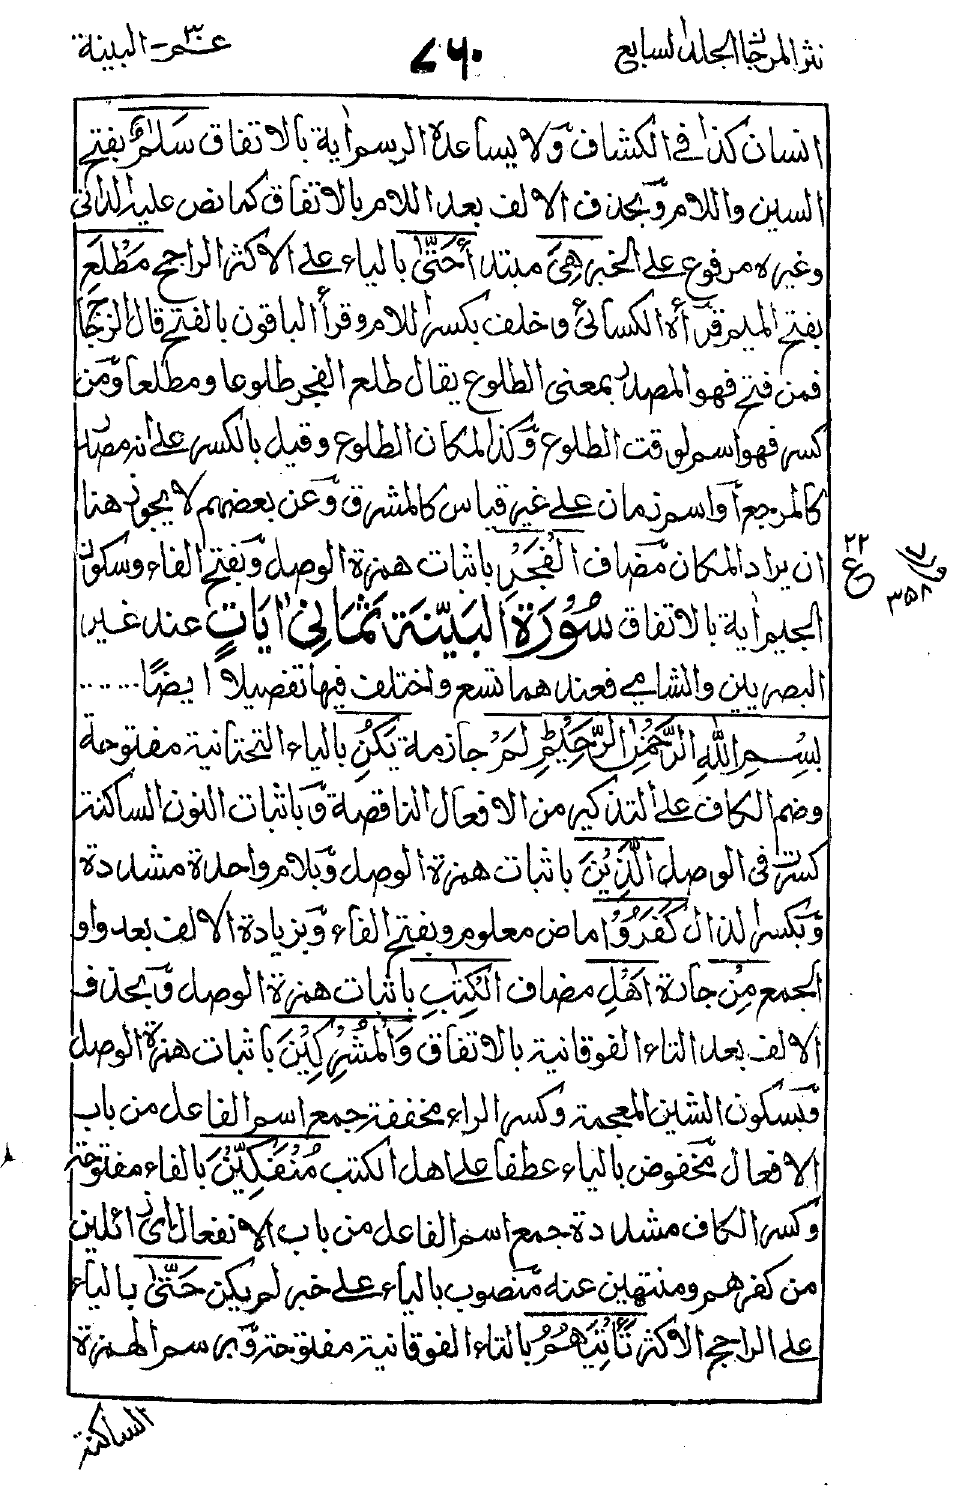 نثر المرجان المجلد السابع
٧٦٠
عمّ ٣٠ ـ البينة
انسان كذا فى الكشاف وَّلا يساعده الرسم اٰية بالاتفاق سَلٰمٌ بفتح
السين واللام وَّبحذف الالف بعد اللام بالاتفاق كما نص عليه الدانى
وغيره مرفوع على الخبر هِيَ مبتدأ حَتّٰى بالياء على الاكثر الراجح مَطْلَعِ
بفتح الميم قرأه الكسائى وخلف بكسر اللام وقرأ الباقون بالفتح قال الزجاج
فمن فتح فهو المصدر بمعنى الطلوع يقال طلع الفجر طلوعا ومطلعا وَّمن
كسر فهو اسم لوقت الطلوع وَّكذا لمكان الطلوع وقيل بالكسر على انه مصدر
كالمرجع أو اسم زمان على غير قياس كالمشرق وَّعن بعضهم لا يجوز هنا
ان يراد المكان مضاف الْفَجْرِ باثبات همزة الوصل وَبفتح الفاء وسكون
الجيم اٰية بالاتفاق سُوْرَةُ الْبَيِّنَةِ ثَمَانِيْ اٰيَاتٍ عند غير
البصريين والشامي فعندهما تسع واختلف فيها تفصيلا ايضًا........
بِسْمِ اللّٰهِ الرَّحْمٰنِ الرَّحِيْمِ لَمْ جازمة يَكُنِ بالياء التحتانية مفتوحة
وضم الكاف على التذكير من الافعال الناقصة وَّباثبات النون الساكنة
كسرت فى الوصل الَّذِيْنَ باثبات همزة الوصل وَّبلام واحدة مشددة
وَّبكسر الذال كَفَرُوْا ماض معلوم وبفتح الفاء وَّبزيادة الالف بعد واو
الجمع مِنْ جارة اَهْلِ مضاف الْكِتٰبِ باثبات همزة الوصل وَّبحذف
الالف بعد التاء الفوقانية بالاتفاق وَالْمُشْرِكِيْنَ باثبات همزة الوصل
وَّبسكون الشين المعجمة وكسر الراء مخففة جمع اسم الفاعل من باب
الافعال مخفوض بالياء عطفا على اهل الكتب مُنْفَكِّيْنَ بالفاء مفتوحة
وَّكسر الكاف مشددة جمع اسم الفاعل من باب الانفعال اى زائلين
من كفرهم ومنتهين عنه منصوب بالياء على خبر لم يكن حَتّٰى بالياء
على الراجح الاكثر تَأْتِيَهُمُ بالتاء الفوقانية مفتوحة وَّبرسم الهمزة
الساكنة
٢٢
ع
٣٥٨